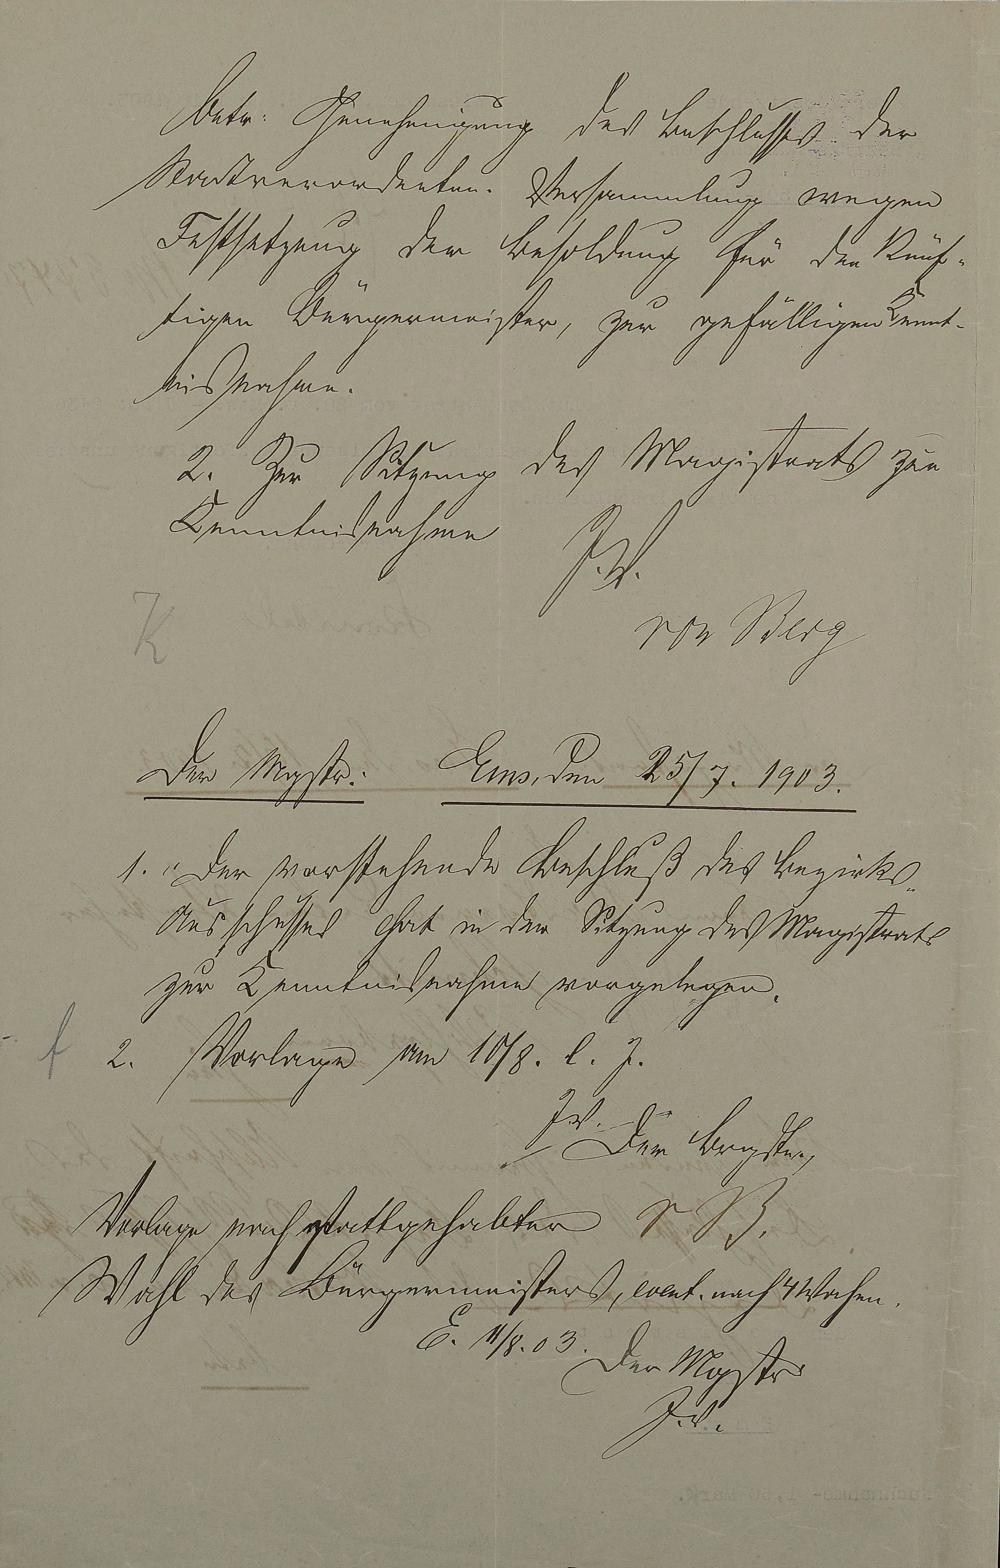 Betr. Genehmigung des Beschlusses der
Stadtverordneten-Versammlung wegen
Festsetzung der Besoldung für den künf-
tigen Bürgermeister, zur gefälligen Kennt-
nisnahme.
2. Zur Sitzung des Magistrats zur
Kenntnisnahme
J. V.
von Berg
K
Der Mgstr.: Ems, den 25/7. 1903.
1. Der vorstehende Beschluß des Bezirks-
Ausschusses hat in der Sitzung des Magistrats
zur Kenntnisnahme vorgelegen.
f
2. Vorlage am 10/8. l. J.
J. V.
Der Brgstr.
v B.
Vorlage nach stattgehabter
Wahl des Bürgermeisters, event. nach 4 Wochen.
E. 11/8. 03.
Der Mgstr
J. V.